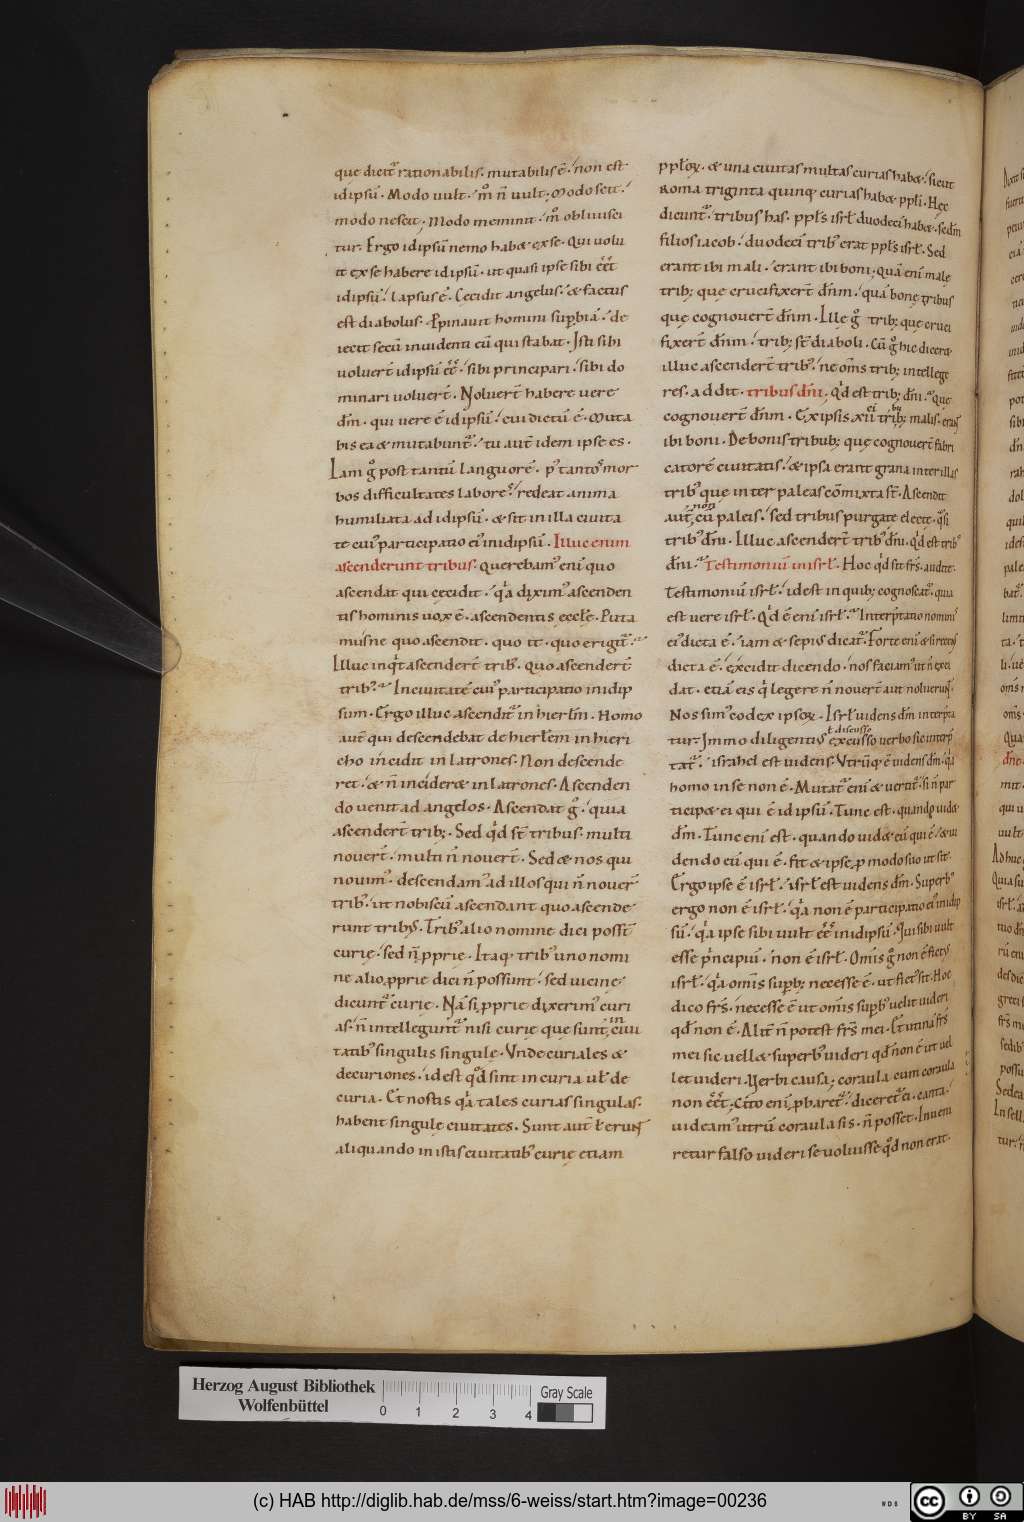 que dicit᷒ rationabilis. mutabilis ē. non est
idipsū. Modo uult. m̊ n̄ uult. modo scit.
modo nescit. Modo meminit. m̊ obliuisci
tur. Ergo idipsū nemo habet ex se. Qui uolu
it ex se habere idipsū. ut quasi ipse sibi eēt
idipsū. lapsus ē. Cecidit angelus. & factus
est diabolus. Propinauit homini supbiā. de
iecit secū inuidenti eū qui stabat. Isti sibi
uoluert̄ idipsū eē. sibi principari. sibi do
minari uoluert̄. Noluert̄ habere uere
dn̄m. qui uere ē idipsū. cui dictū ē. Muta
bis ea & mutabunt᷒. tu aut̄ idem ipse es.
Iam g̊ post tantū languorē. p᷒ tantos mor
bos difficultates labores. redeat anima
humiliata ad idipsū. & sit in illa ciuita
te cui᷒ participatio ei᷒ in idipsū. Illuc enim
ascenderunt tribus. Querebam᷒ eni quo
ascendat qui cecidit. qa dixim᷒ ascenden
tis hominis uox ē. ascendentis eccłe. Puta
mus ne quo ascendit. quo it. quo erigit᷒.
Illuc inqt ascendert̄ trib᷒. Quo ascendert̄
trib᷒. In ciuitatē cui᷒ participatio in idip
sum. Ergo illuc ascendit᷒ in hierłm. Homo
aut̄ qui descendebat de hierłem in hieri
cho incidit in latrones. Non descende
ret. & n̄ incideret in latrones. Ascenden
do uenit ad angelos. Ascendat g̊. quia
ascendert̄ trib;. Sed qd st̄ tribus. multi
nouert̄. multi n̄ nouert̄. Sed & nos qui
nouim᷒. descendam᷒ ad illos qui n̄ nouert̄
trib᷒. ut nobiscū ascendant quo ascende
runt trib᷒. Trib᷒ alio nomine dici poss̄t
curię. sed n̄ pprie. Itaq trib᷒ uno nomi
ne alio pprie dici n̄ possunt. sed uicine
dicunt᷒ curię. Nā si pprie dixerim᷒ curi
as. n̄ intellegunt᷒ nisi curię que sunt in ciui
tatib᷒ singulis singulę. Unde curiales &
decuriones. id est qd sint in curia uł de
curia. Et nostis qa tales curias singulas.
habent singulę ciuitates. Sunt aut̄
aliquando in istis ciuitatib᷒ curię etiam
ppłoꝝ. & una ciuitas multas curias habet. sicut
Roma triginta quinq curias habet ppli. Hęc
dicunt᷒. tribus has. ppłs isrł duodeci habet. scdm
filios iacob. duodeci trib᷒ erat ppłs isrł. Sed
erant ibi mali. erant ibi boni. quā eni male
trib; que crucifixert̄ dn̄m. quā bonę tribus
que cognouert̄ dn̄m. Illę g̊ trib; que cruci
fixert̄ dn̄m. trib; st̄ diaboli. Cū g̊ hic diceret
illuc ascendert̄ trib᷒. ne om̄s trib; intellege
res. addit. tribus dn̄i. Qd est trib; dn̄i. Quę
cognouert̄ dn̄m. Ex ipsis xii trib; malis.
ibi boni. De bonis tribub; quę cognouert̄ fabri
catorē ciuitatis. & ipsa erant grana inter illas
trib᷒ que inter paleas cōmixta st̄. Ascendit
aut̄ non cū paleis. sed tribus purgatę electę. qsi
trib᷒ dn̄i. Illuc ascendert̄ trib᷒ dn̄i. qd est trib᷒
dn̄i. Testimoniū in isrł. Hoc qd sit frs̄. audite.
Testimoniū isrł. id est in quib; cognoscat᷒. quia
est uere isrł. Qd ē eni isrł. Interpretatio nomini᷒
ei᷒ dicta ē. iam & sepi᷒ dicat᷒. Forte eni &si recens
dicta ē. excidit dicendo. nos faciam᷒ ut n̄ exci
dat. etiā eis q legere n̄ nouert̄ aut noluerunt.
Nos sim᷒ codex ipsoꝝ. Isrł uidens dm̄ interpreta
tur. Immo diligenti᷒ excusso uerbo sic interp
ł discusso
tat᷒. israhel est uidens. Utrūq ē uidens dm̄. qa
homo in se non ē. Mutat᷒ eni & uertit᷒. si n̄ par
ticipet ei qui ē idipsū. Tunc est. quando uidet
dm̄. Tunc eni est. quando uidet eū qui ē. & ui
dendo eū qui ē. fit & ipse p modo suo ut sit.
Ergo ipse ē isrł. isrł est uidens dm̄. Superb᷒
ergo non ē isrł. qa non ē participatio ei᷒ in idip
sū. qa ipse sibi uult eē in idipsū. Qui sibi uult
esse pncipiū. non ē isrł. Om̄is g̊ non ē fictus
isrł. qa om̄is supb; necesse ē. ut fict᷒ sit. Hoc
dico frs̄. necesse ē ut om̄is supb᷒ uelit uideri
qđ non ē. Alit̄ n̄ potest frs̄ mei. Et utinā frs̄
mei sic uellet superb᷒ uideri qđ non ē ut uel
let uideri. Verbi causa; coraula cum coraula
non eēt. Cito eni pbaret᷒. diceret᷒ ei. canta.
uideam᷒ utrū coraula sis. n̄ posset. Inueni
retur falso uideri se uoluisse qđ non erat.
Herzog August Bibliothek
Wolfenbüttel
0 1 2 3 4
Gray Scale
(c) HAB http://diglib.hab.de/mss/6-weiss/start.htm?image=00236
WDB
cc BY SA